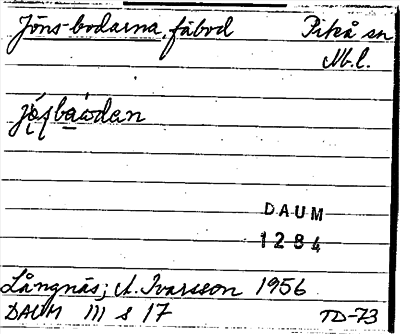 Jöns-bodarna, fäbod Piteå sn
Nb.l.
DAUM
1284
Långnäs; A. Ivarsson 1956
DAUM III s 17 TD-73